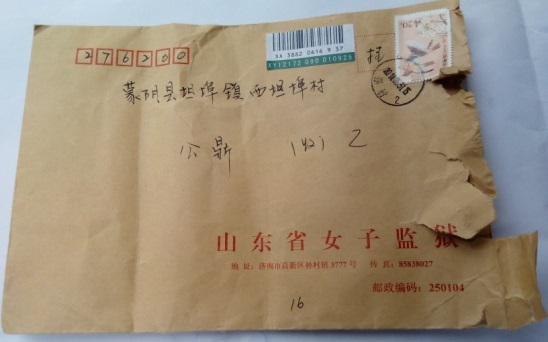 276200
XA 3882 0416 9 37
XY12172 090 010925
挂
蒙阴县坦埠镇西坦埠村
公鼎 (收) 乙
山东省女子监狱
地 址：济南市高新区孙村镇3777号 传 真：85838027
邮政编码：250104
16